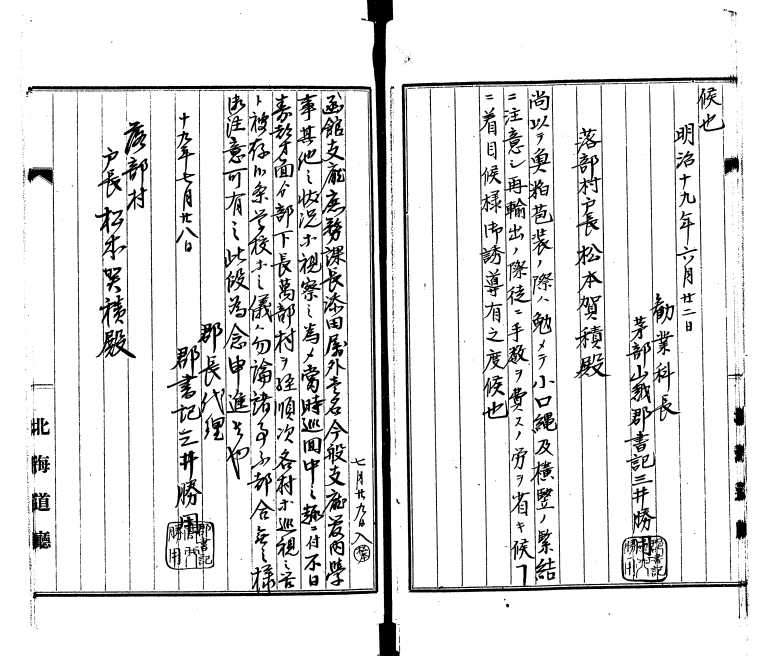 候也
明治十九年六月廿二日
勧業科長
茅部山越郡書記三井勝用
落部村戸長松本賀積殿
尚以テ魚粕苞装ノ際ハ勉メテ小口縄及横竪ノ緊結
ニ注意シ再輸出ノ際徒ニ手数ヲ費スノ労ヲ省キ候
ニ着目候様御誘導有之度候也
七月廿九日入
函館支庁庶務課長添田外壱名今般支庁管内学
事其他之状況等視察之為メ当時巡回中之趣ニ付不日
方面今部下長萬部村ヲ経順次各村等巡視之旨
被存候条学校等之儀ハ勿論諸事不都合無之様
御注意可有之此段為念申進候也
十九年七月廿八日
郡長代理
郡書記三井勝用
落部村
戸長松本賀積殿
北海道廳